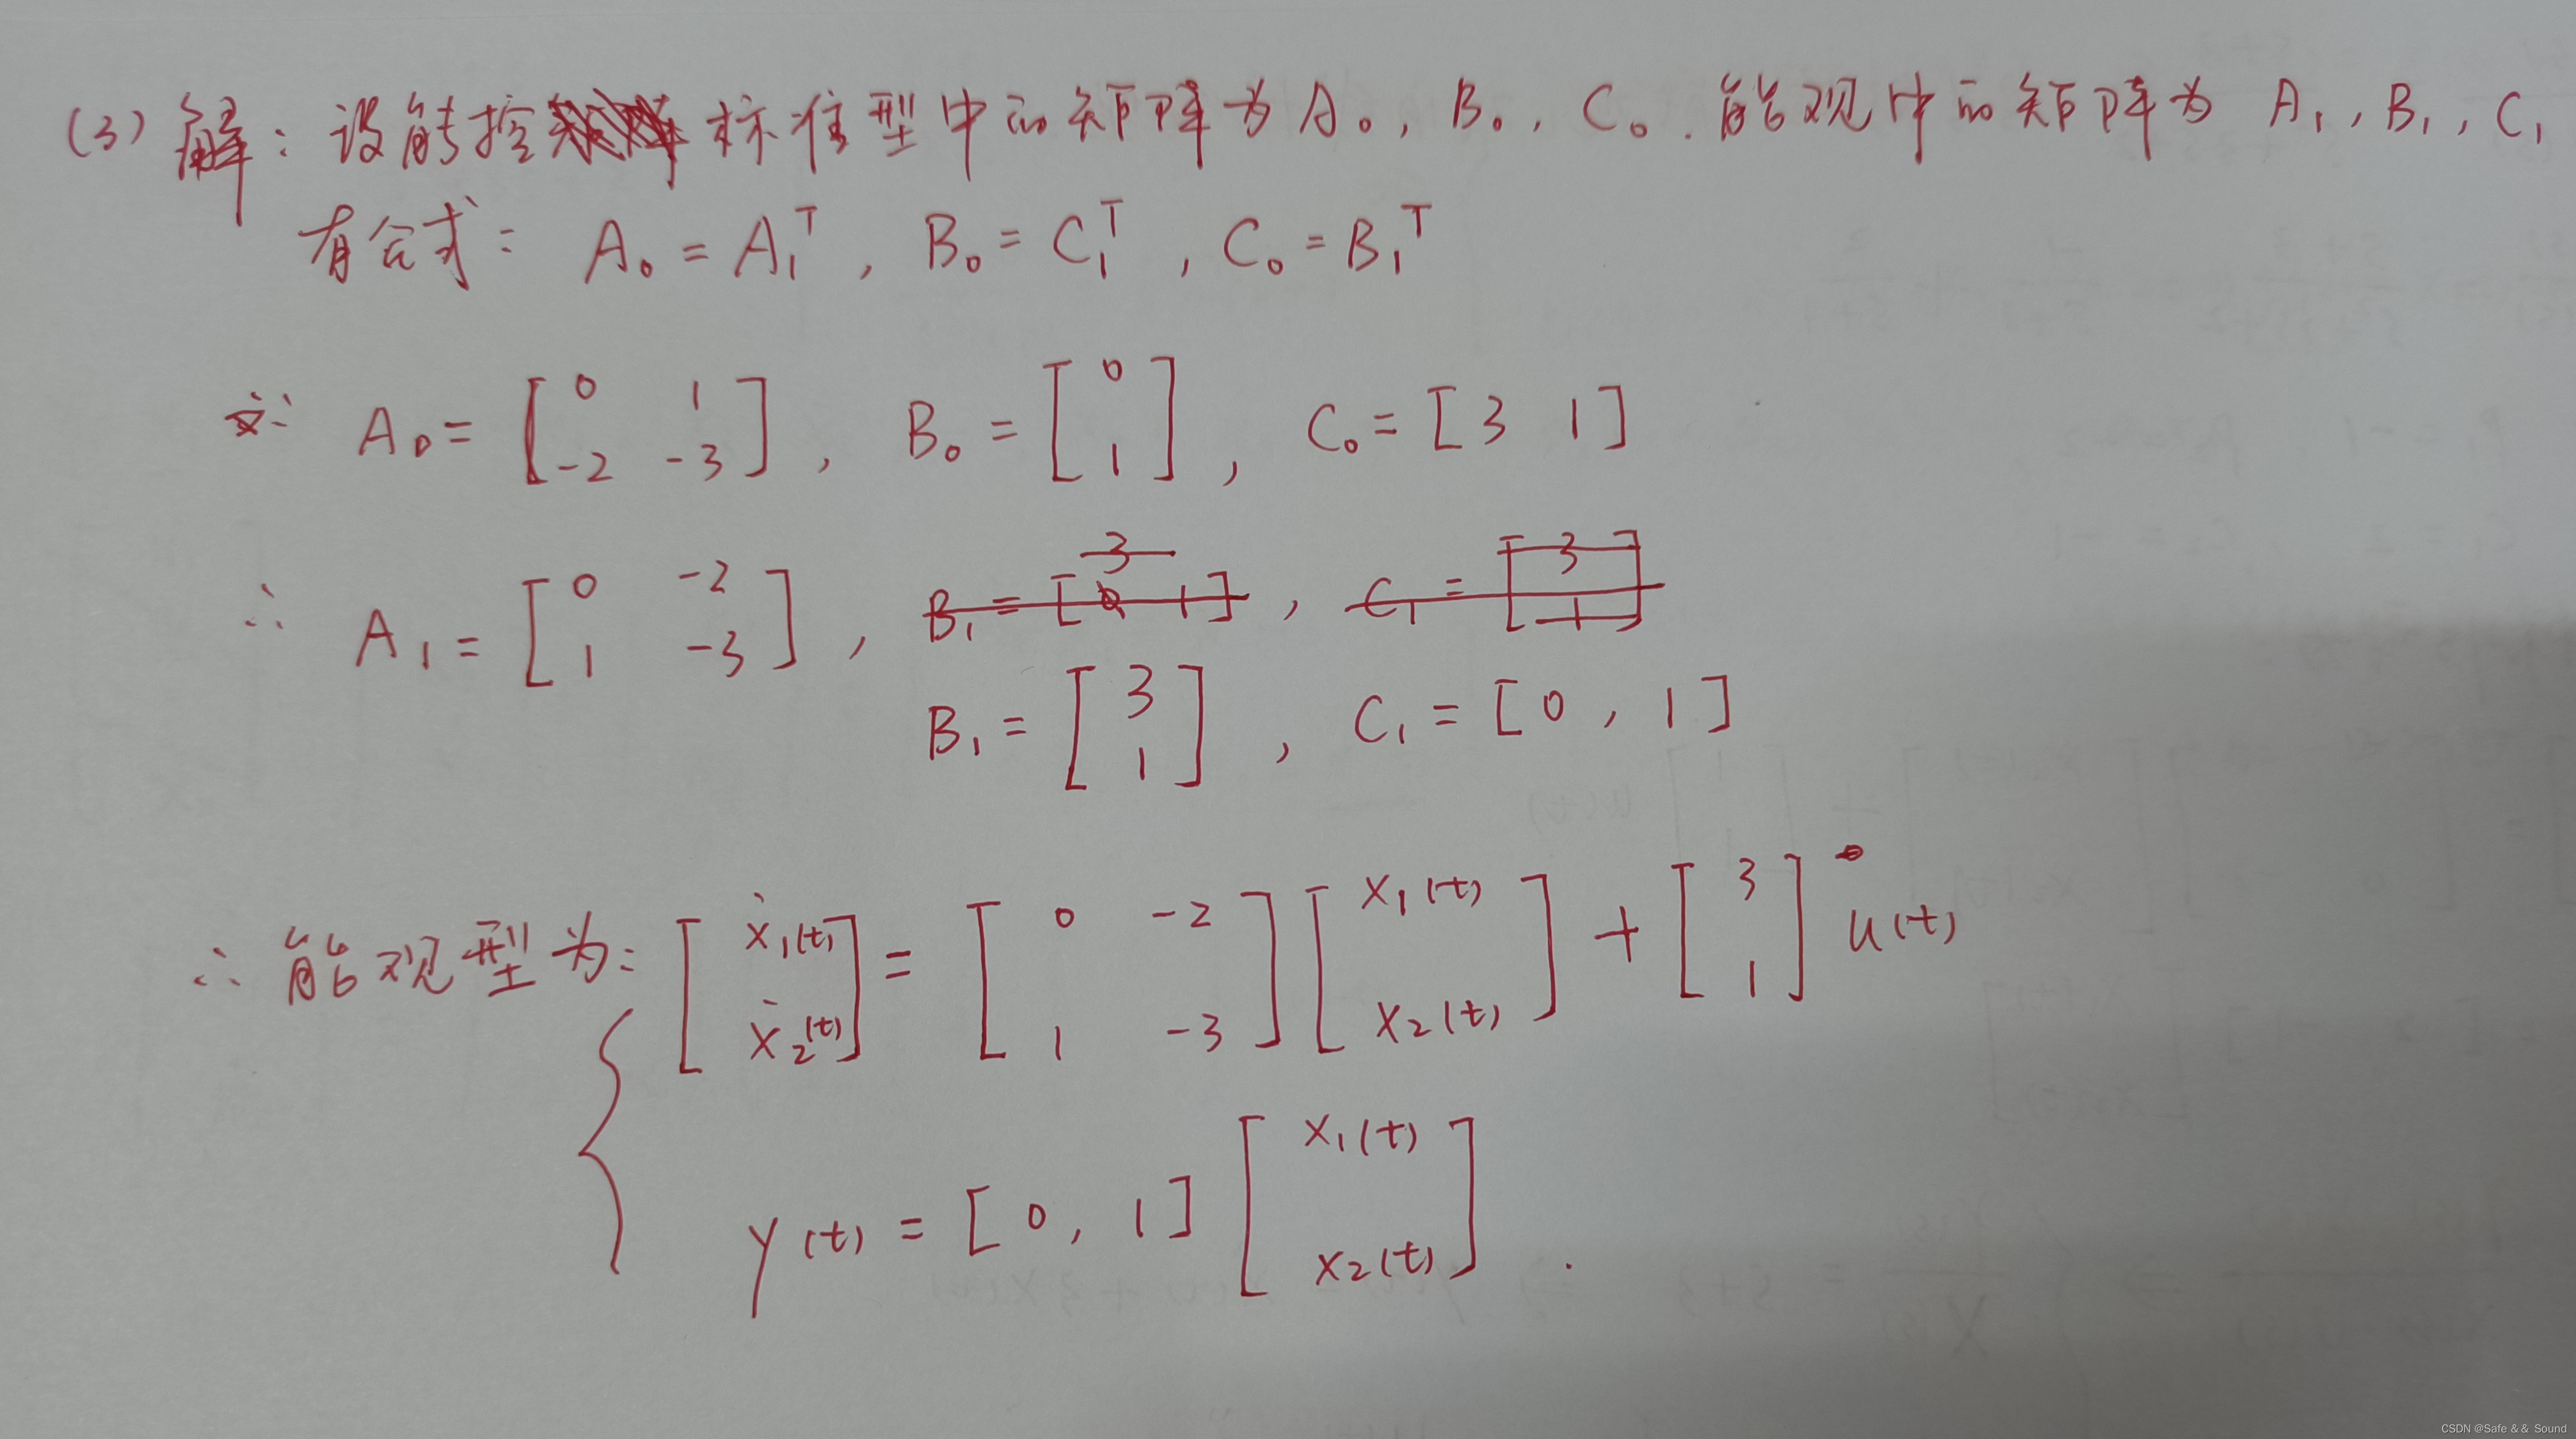 (3) 解: 设能控标准型中的矩阵为 A₀, B₀, C₀. 能观中的矩阵为 A₁, B₁, C₁
有公式: A₀ = A₁ᵀ, B₀ = C₁ᵀ, C₀ = B₁ᵀ
∵ A₀ = [0 1; -2 -3], B₀ = [0; 1], C₀ = [3 1]
∴ A₁ = [0 -2; 1 -3], B₁ = [3 1], C₁ = [3; 1]
B₁ = [3; 1], C₁ = [0, 1]
∴ 能观型为: [ẋ₁(t); ẋ₂(t)] = [0 -2; 1 -3] [x₁(t); x₂(t)] + [3; 1] u(t)
y(t) = [0, 1] [x₁(t); x₂(t)].
CSDN @Safe && Sound